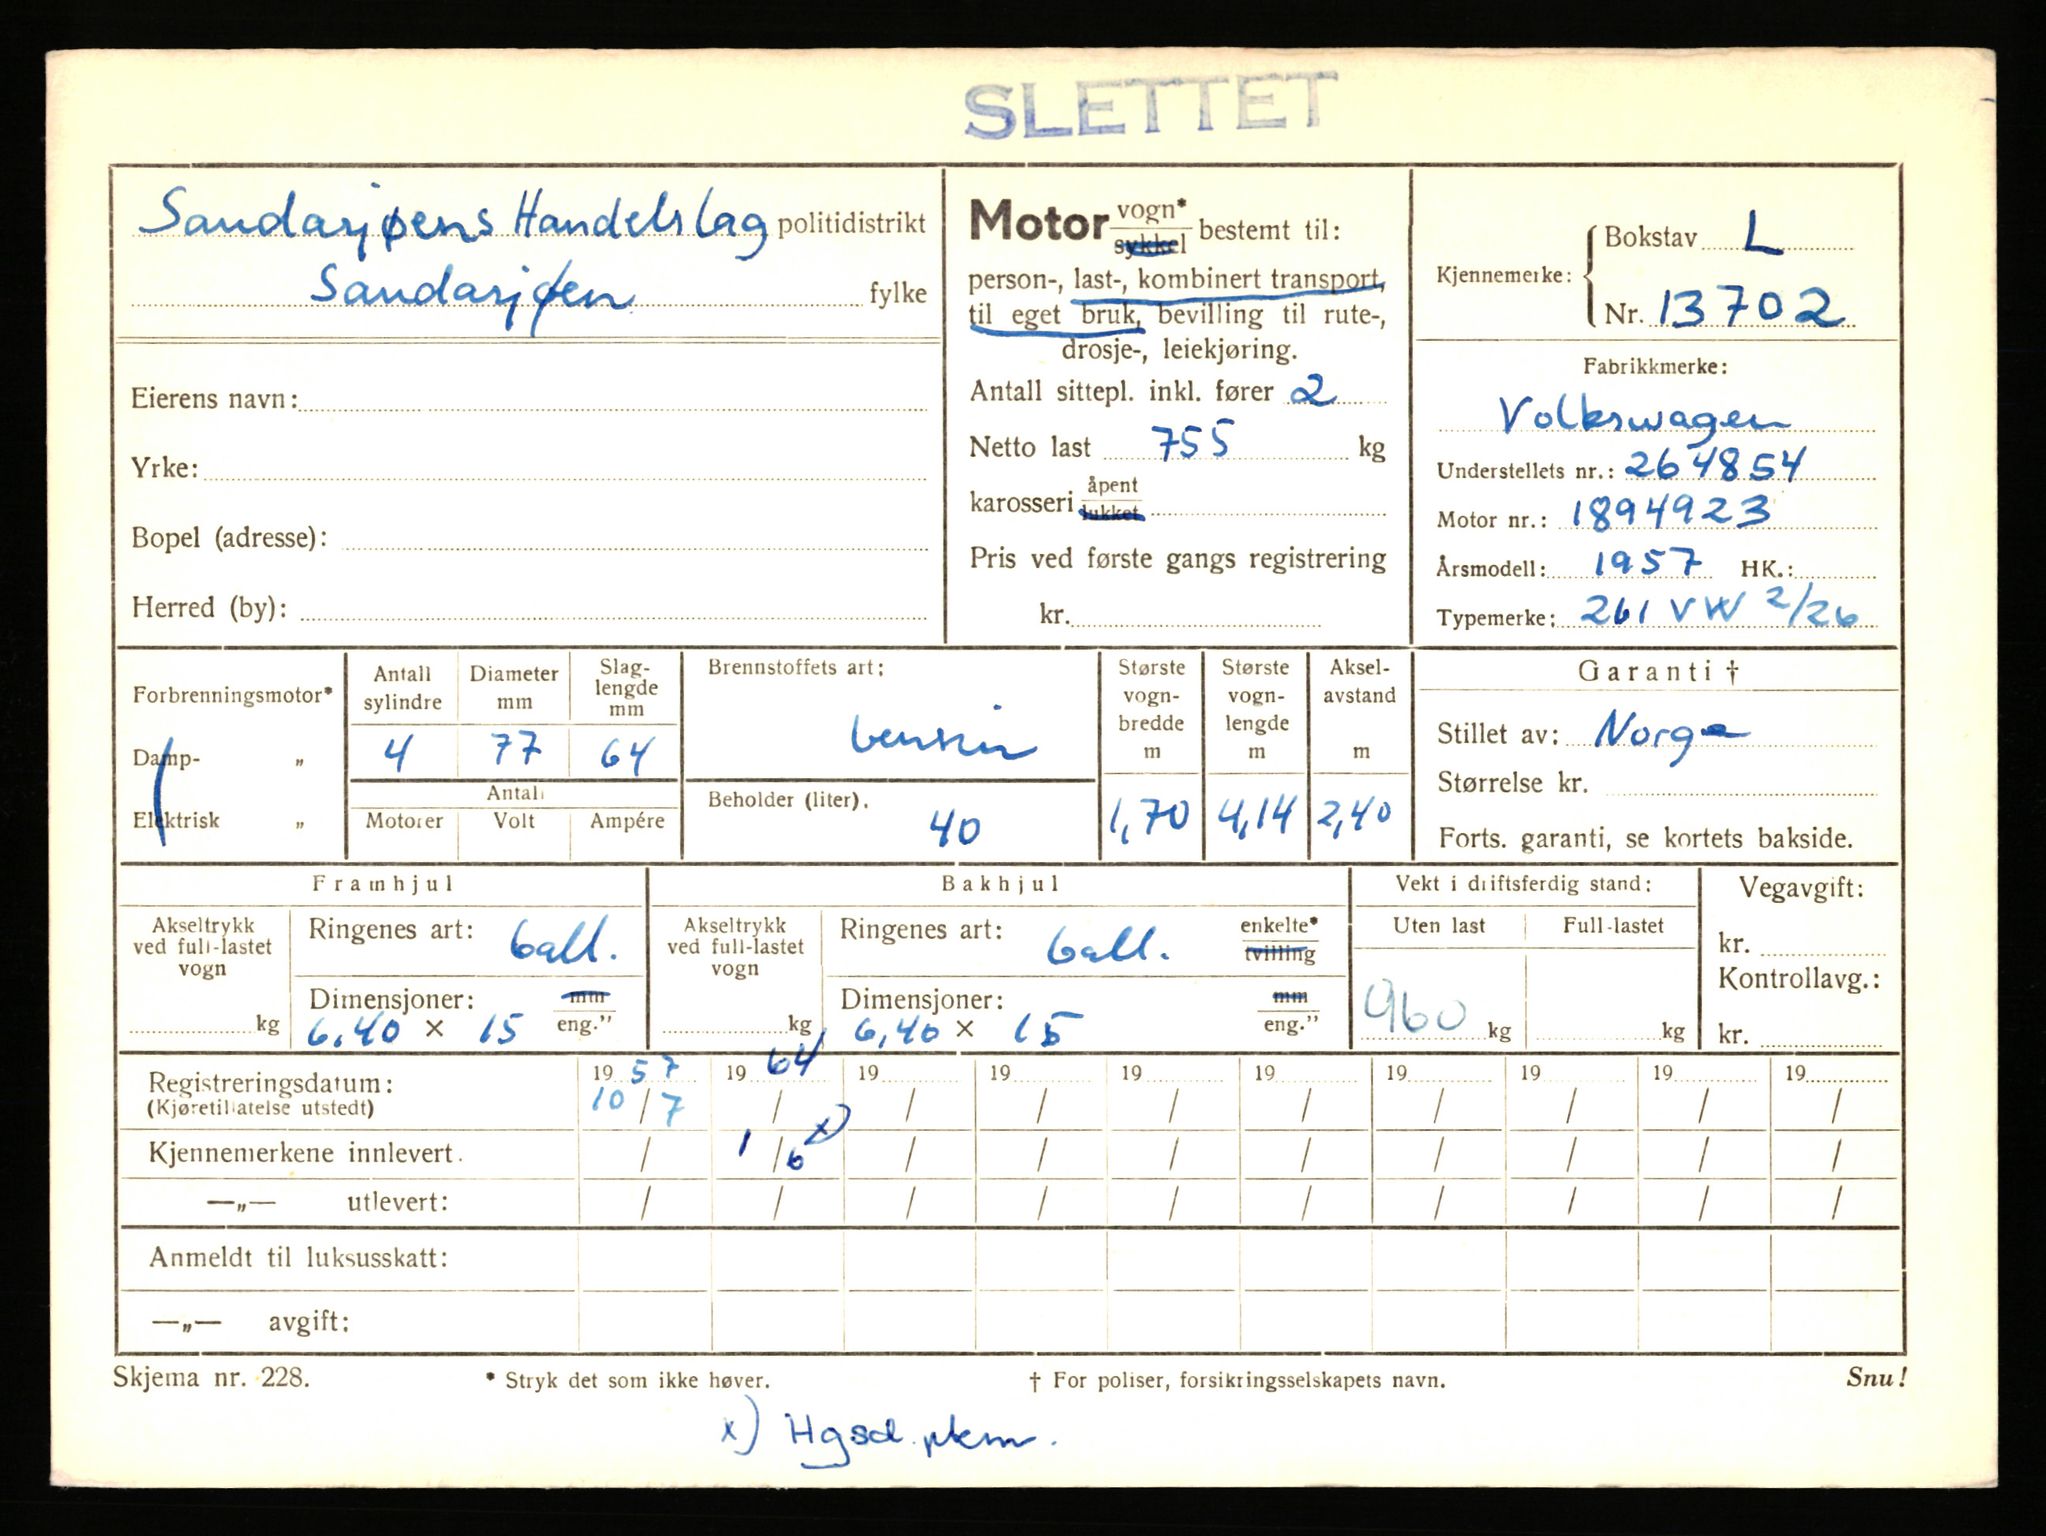 SLETTET
Sandasjøens Handelslag politidistrikt
Sandasjøen fylke
Eierens navn:
Yrke:
Bopel (adresse):
Herred (by):
Motor vogn* sykkel bestemt til:
person-, last-, kombinert transport,
til eget bruk, bevilling til rute-,
drosje-, leiekjøring.
Antall sittepl. inkl. fører 2
Netto last 755 kg
karosseri åpent lukket
Pris ved første gangs registrering
kr.
Kjennemerke: Bokstav L
Nr. 13702
Fabrikkmerke:
Volkswagen
Understellets nr.: 264854
Motor nr.: 1894923
Årsmodell: 1957 HK.:
Typemerke: 261 VW 2/26
Forbrenningsmotor*
Damp- „
Elektrisk „
Antall sylindre
4
Diameter mm
77
Slag-lengde mm
64
Antall
Motorer Volt Ampére
Brennstoffets art:
bensin
Beholder (liter).
40
Største vogn-bredde m
1,70
Største vogn-lengde m
4,14
Aksel-avstand m
2,40
Garanti †
Stillet av: Norge
Størrelse kr.
Forts. garanti, se kortets bakside.
Framhjul
Akseltrykk ved full-lastet vogn
kg
Ringenes art: ball.
Dimensjoner: mm eng."
6,40 × 15
Bakhjul
Akseltrykk ved full-lastet vogn
kg
Ringenes art: ball. enkelte* tvilling
Dimensjoner: mm eng."
6,40 × 15
Vekt i driftsferdig stand:
Uten last Full-lastet
960 kg kg
Vegavgift:
kr.
Kontrollavg.:
kr.
Registreringsdatum: 19 57 19 64 19 19 19 19 19 19 19 19
(Kjøretillatelse utstedt) 10/7 / / / / / / / / /
Kjennemerkene innlevert. / 1/6 x) / / / / / / / /
—„— utlevert: / / / / / / / / / /
Anmeldt til luksusskatt:
—„— avgift:
Skjema nr. 228. * Stryk det som ikke høver. † For poliser, forsikringsselskapets navn. Snu!
x) Hgsd. pkm.